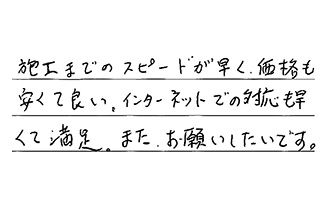 施工までのスピードが早く、価格も
安くて良い。インターネットでの対応も早
くて満足。また、お願いしたいです。